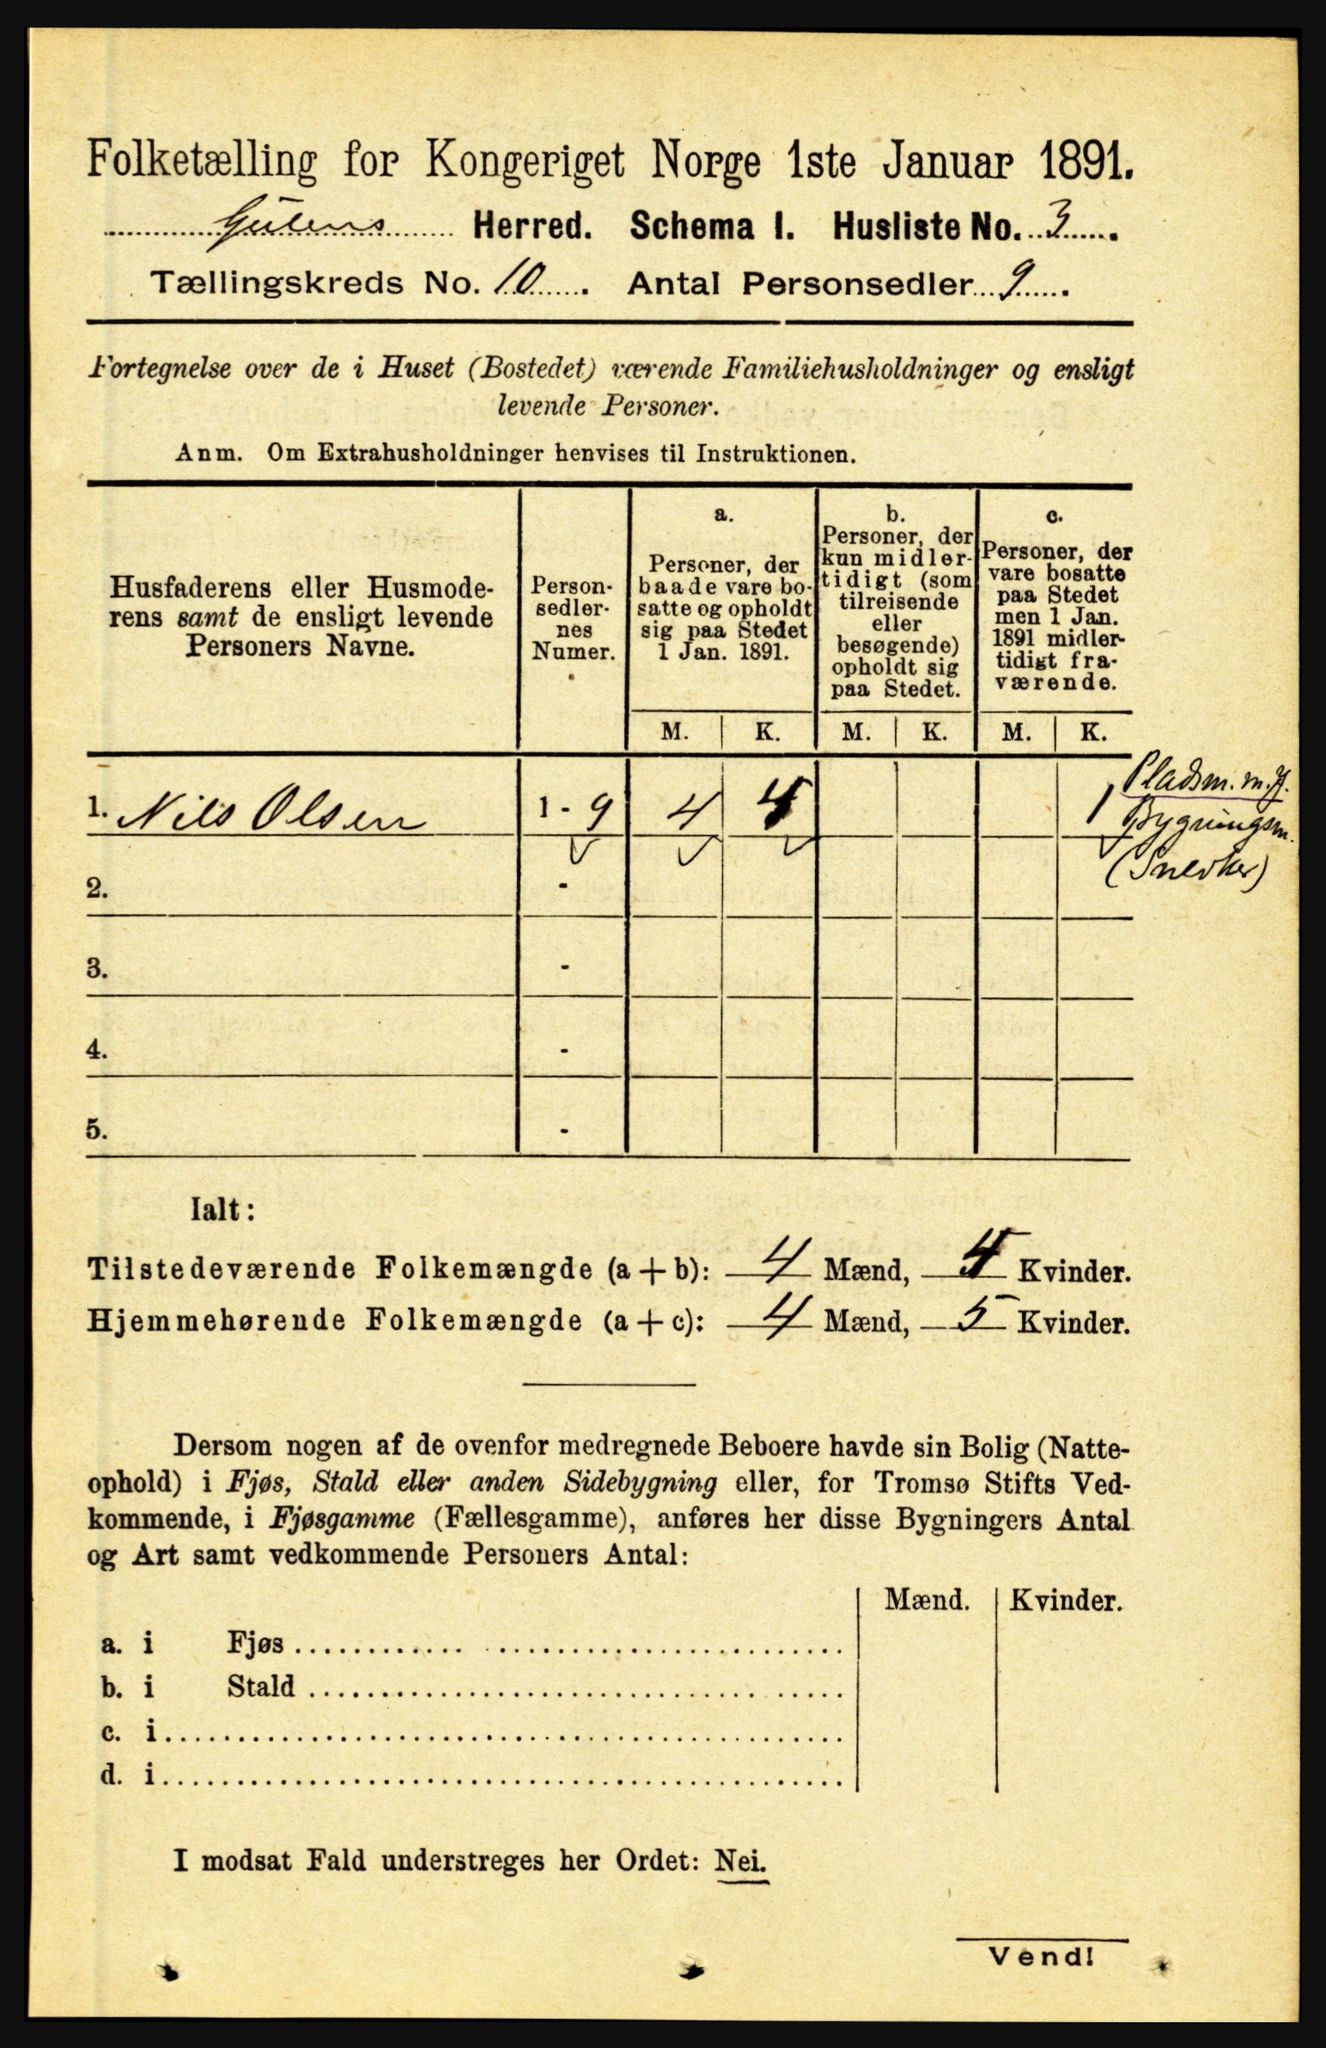 Folketælling for Kongeriget Norge 1ste Januar 1891.
Gulens Herred. Schema I. Husliste No. 3.
Tællingskreds No. 10. Antal Personsedler 9.
Fortegnelse over de i Huset (Bostedet) værende Familiehusholdninger og ensligt
levende Personer.
Anm. Om Extrahusholdninger henvises til Instruktionen.
Husfaderens eller Husmode-
rens samt de ensligt levende
Personers Navne.
Person-
sedler-
nes
Numer.
a.
Personer, der
baade vare bo-
satte og opholdt
sig paa Stedet
1 Jan. 1891.
b.
Personer, der
kun midler-
tidigt (som
tilreisende
eller
besøgende)
opholdt sig
paa Stedet.
c.
Personer, der
vare bosatte
paa Stedet
men 1 Jan.
1891 midler-
tidigt fra-
værende.
M. K. M. K. M. K.
1. Nils Olsen 1 - 9 4 4 1
Pladsm. m. J.
Bygningsm.
(Snedker)
2. -
3. -
4. -
5. -
Ialt:
Tilstedeværende Folkemængde (a + b): 4 Mænd, 4 Kvinder.
Hjemmehørende Folkemængde (a + c): 4 Mænd, 5 Kvinder.
Dersom nogen af de ovenfor medregnede Beboere havde sin Bolig (Natte-
ophold) i Fjøs, Stald eller anden Sidebygning eller, for Tromsø Stifts Ved-
kommende, i Fjøsgamme (Fællesgamme), anføres her disse Bygningers Antal
og Art samt vedkommende Personers Antal:
Mænd. Kvinder.
a. i Fjøs
b. i Stald
c. i
d. i
I modsat Fald understreges her Ordet: Nei.
Vend!